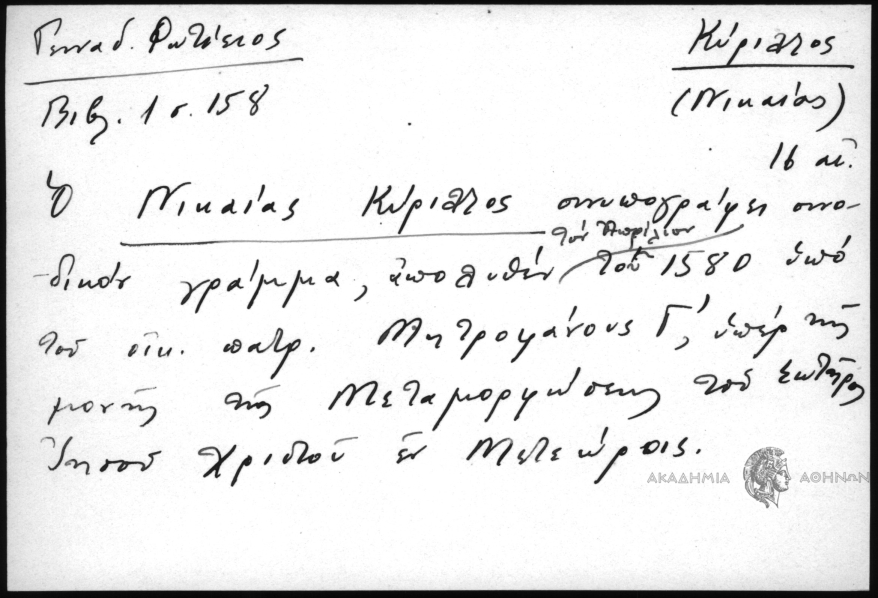 Γενναδ. Φωτίειος
Κύριλλος
Βιβλ. 1 σ. 158
(Νικαίας)
16 αἰ.
Ὁ Νικαίας Κύριλλος συνυπογράφει συνο-
τὸν Ἀπρίλιον
δικὸν γράμμα, ἀπολυθὲν τοῦ 1580 ὑπὸ
τοῦ οἰκ. πατρ. Μητροφάνους Γ', ὑπὲρ τῆς
μονῆς τῆς Μεταμορφώσεως τοῦ Σωτῆρος
Ἰησοῦ Χριστοῦ ἐν Μετεώροις.
ΑΚΑΔΗΜΙΑ ΑΘΗΝΩΝ